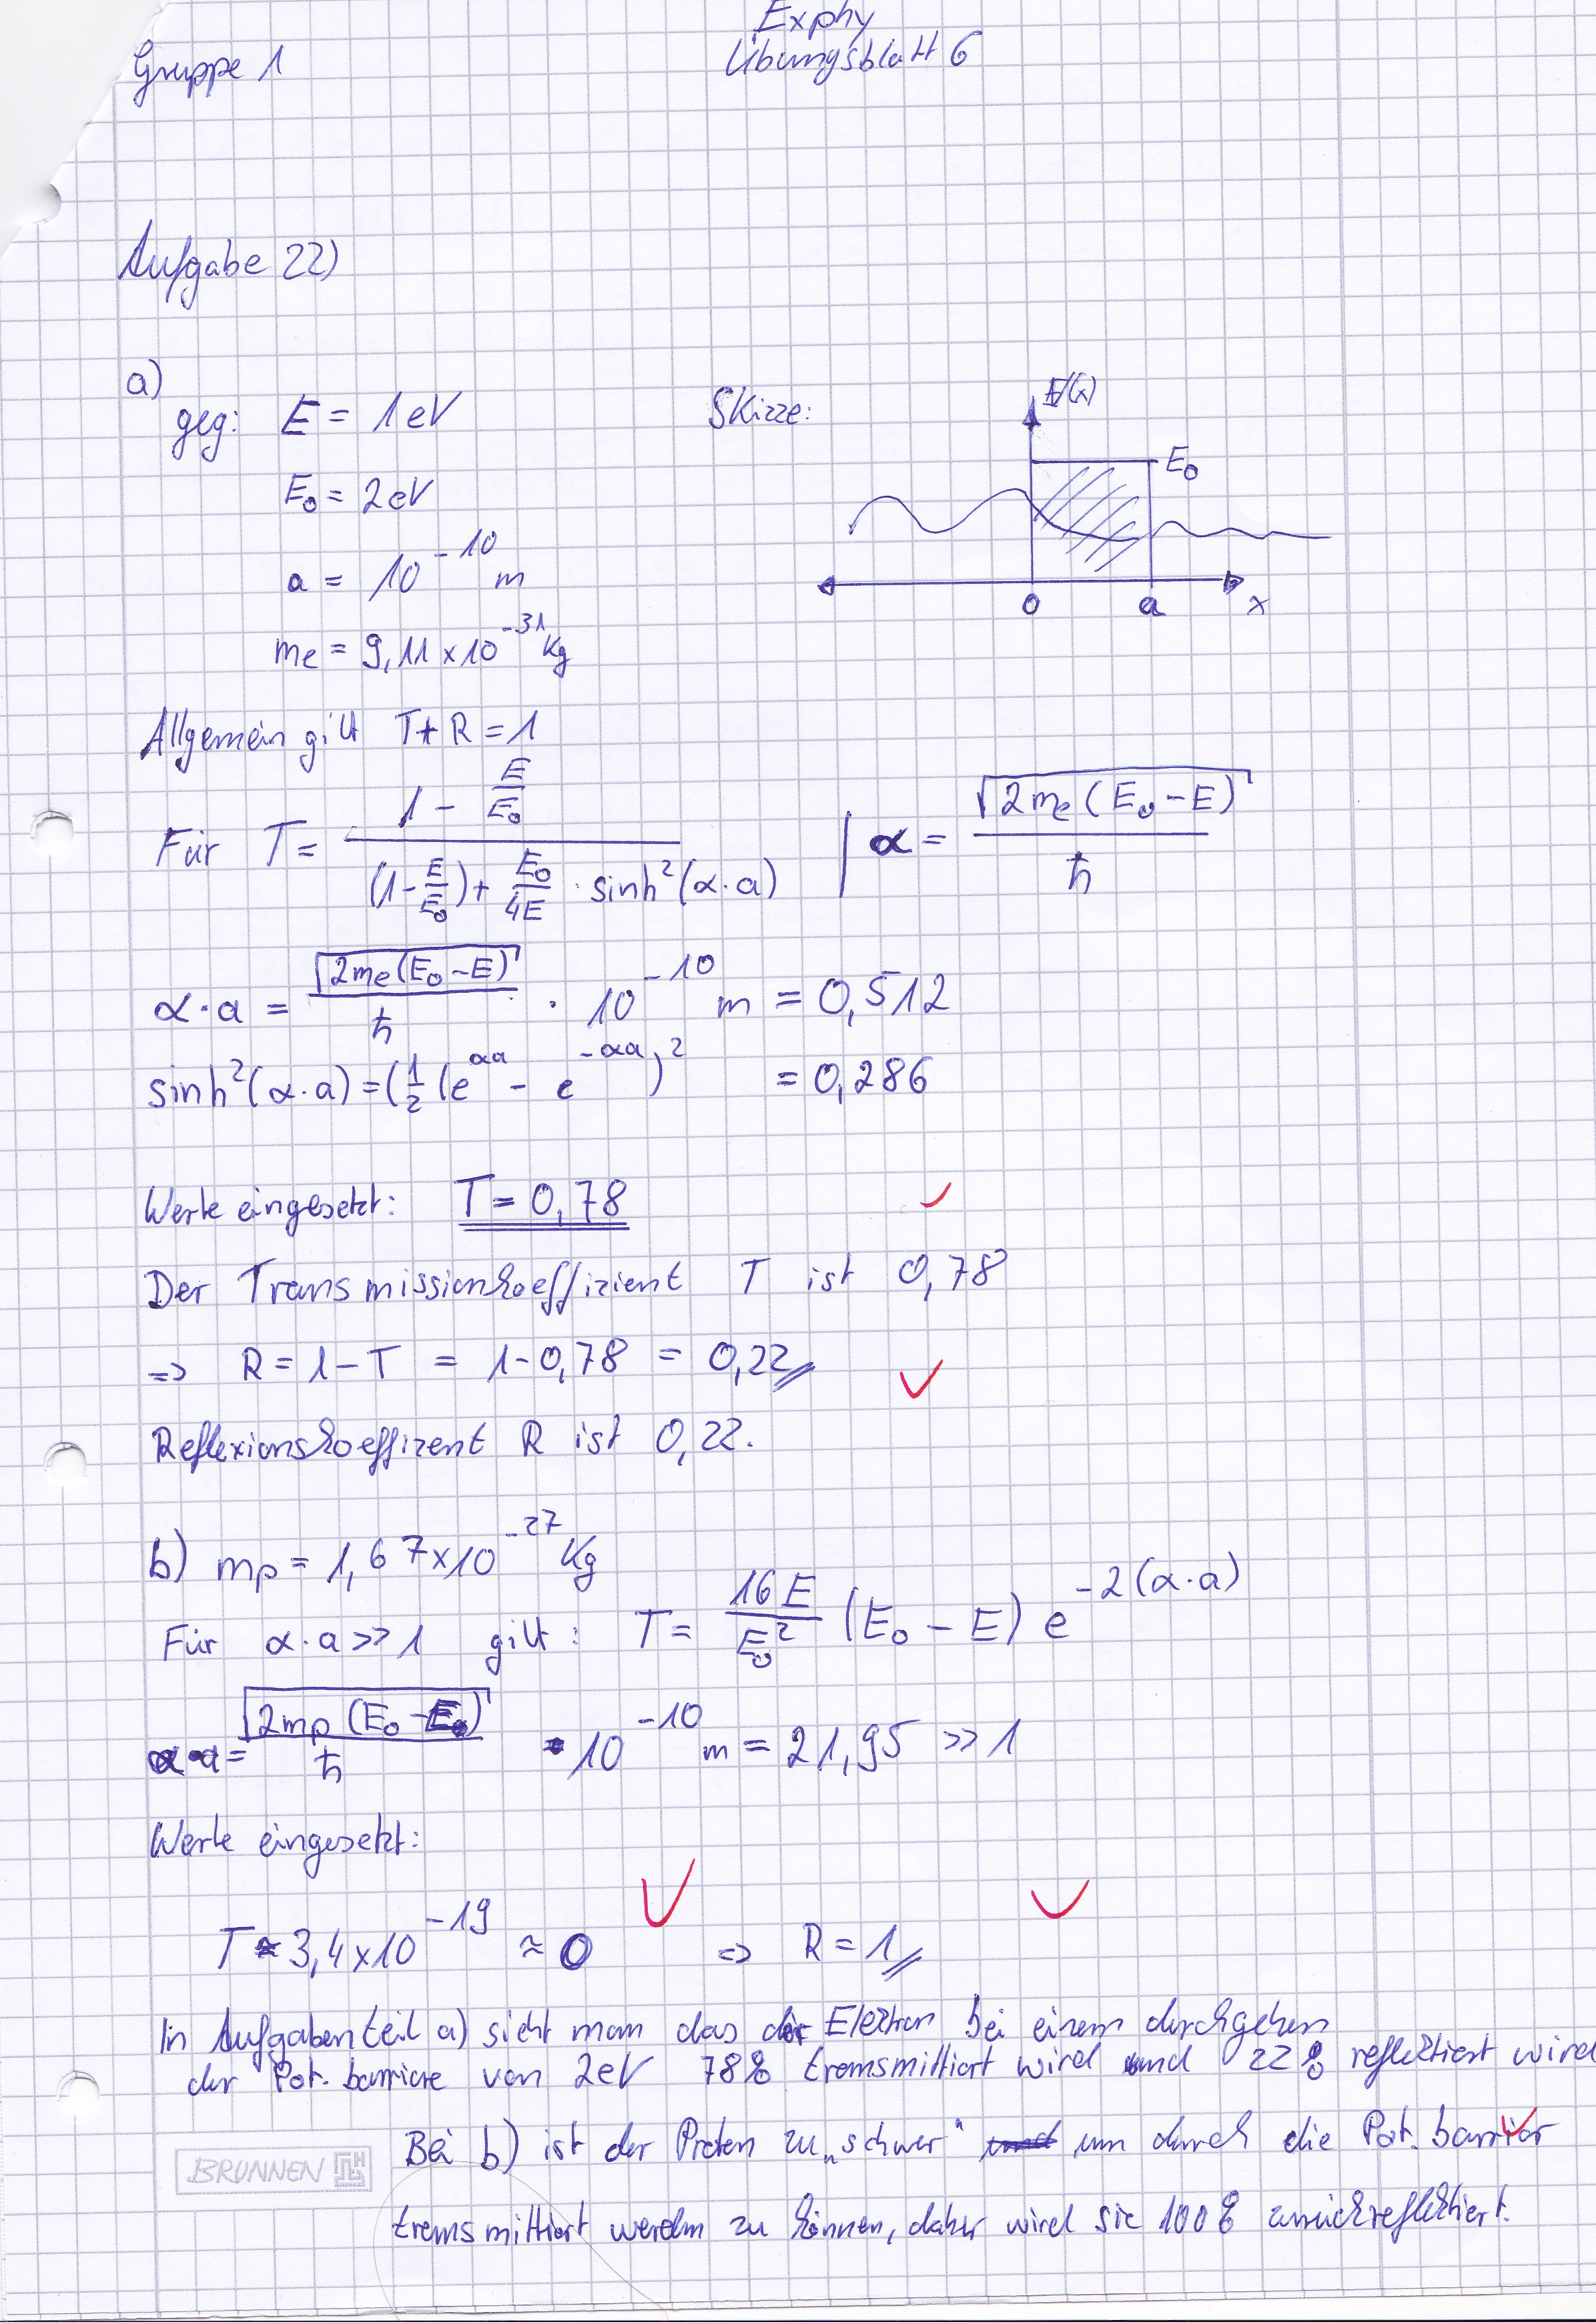 Exphy
Gruppe 1 Übungsblatt 6
Aufgabe 22)
a)
geg: E = 1eV Skizze: E(x)
E₀
E₀ = 2eV
a = 10⁻¹⁰ m
0 a x
me = 9,11 x 10⁻³¹ Kg
Allgemein gilt T + R = 1
Für T = (1 - E/E₀) / ((1 - E/E₀) + E₀/4E · sinh²(α·a)) | α = √(2me (E₀ - E)) / ħ
α·a = √(2me (E₀ - E)) / ħ · 10⁻¹⁰ m = 0,512
sinh²(α·a) = (½ (e^αa - e^-αa)² = 0,286
Werte eingesetzt: T = 0,78 ✓
Der Transmissionkoeffizient T ist 0,78
=> R = 1 - T = 1 - 0,78 = 0,22 ✓
Reflexionskoeffizent R ist 0,22.
b) mp = 1,67 x 10⁻²⁷ Kg
Für α·a >> 1 gilt: T = 16 E / E₀² (E₀ - E) e^-2(α·a)
α·a = √(2mp (E₀ - E)) / ħ · 10⁻¹⁰ m = 21,95 >> 1
Werte eingesetzt:
T ≈ 3,4 x 10⁻¹⁹ ≈ 0 ✓ => R = 1 ✓
In Aufgabenteil a) sieht man das Elektron bei einem durchgehen
der Pot. barriere von 2eV 78% transmittiert wird und 22% reflektiert wird
Bei b) ist der Proton zu „schwer" um durch die Pot. barriar ✓
BRUNNEN
transmittiert werden zu können, daher wird sie 100% zurückreflektiert.